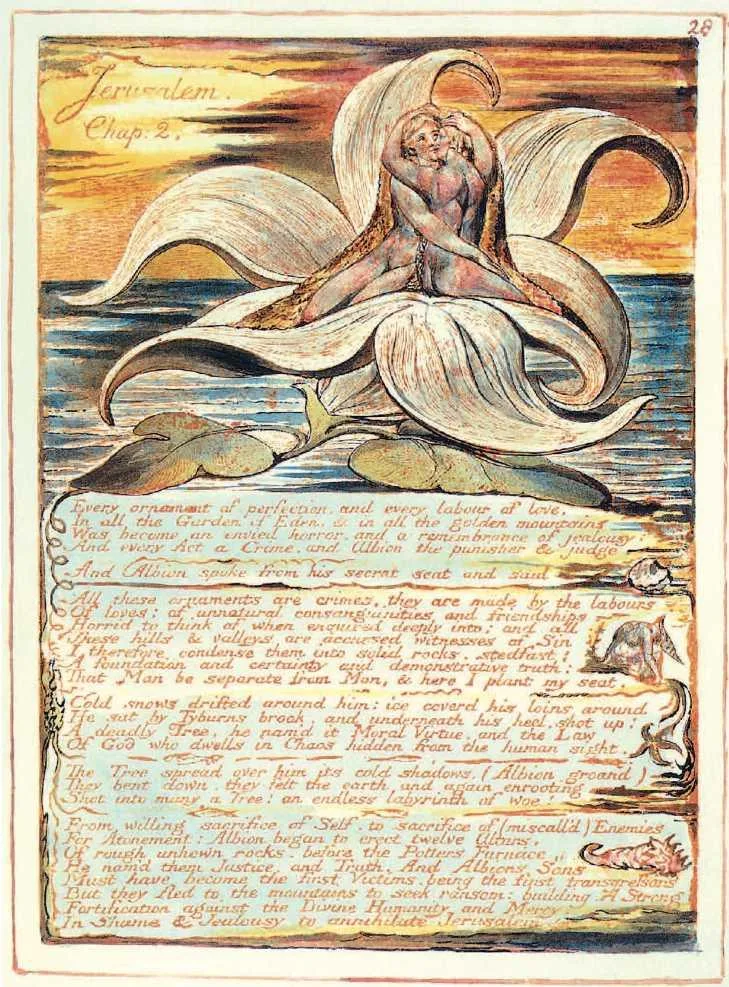 28
Jerusalem.
Chap: 2.
Every ornament of perfection, and every labour of love,
In all the Garden of Eden, & in all the golden mountains
Was become an envied horror, and a remembrance of jealousy:
And every Act a Crime, and Albion the punisher & judge.
And Albion spoke from his secret seat and said
All these ornaments are crimes, they are made by the labours
Of loves: of unnatural consanguinities and friendships
Horrid to think of when enquired deeply into; and all
These hills & valleys are accursed witnesses of Sin
I therefore condense them into solid rocks, stedfast!
A foundation and certainty and demonstrative truth:
That Man be separate from Man, & here I plant my seat.
Cold snows drifted around him: ice coverd his loins around
He sat by Tyburns brook, and underneath his heel, shot up!
A deadly Tree, he nam'd it Moral Virtue, and the Law
Of God who dwells in Chaos hidden from the human sight.
The Tree spread over him its cold shadows, (Albion groand)
They bent down, they felt the earth and again enrooting
Shot into many a Tree! an endless labyrinth of woe!
From willing sacrifice of Self, to sacrifice of (miscall'd) Enemies
For Atonement: Albion began to erect twelve Altars,
Of rough unhewn rocks, before the Potters Furnace
He nam'd them Justice, and Truth. And Albions Sons
Must have become the first Victims, being the first transgressors
But they fled to the mountains to seek ransom: building A Strong
Fortification against the Divine Humanity and Mercy,
In Shame & Jealousy to annihilate Jerusalem